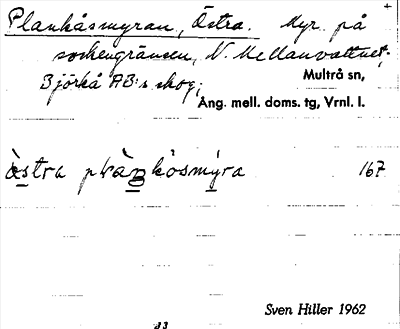 Plankåsmyran, Östra. Myr på
sockengränsen, N. Mellanvattnet,
Björkå AB:s skog;
Multrå sn,
Ång. mell. doms. tg, Vrnl. l.
östra plankåsmyra 167
Sven Hiller 1962